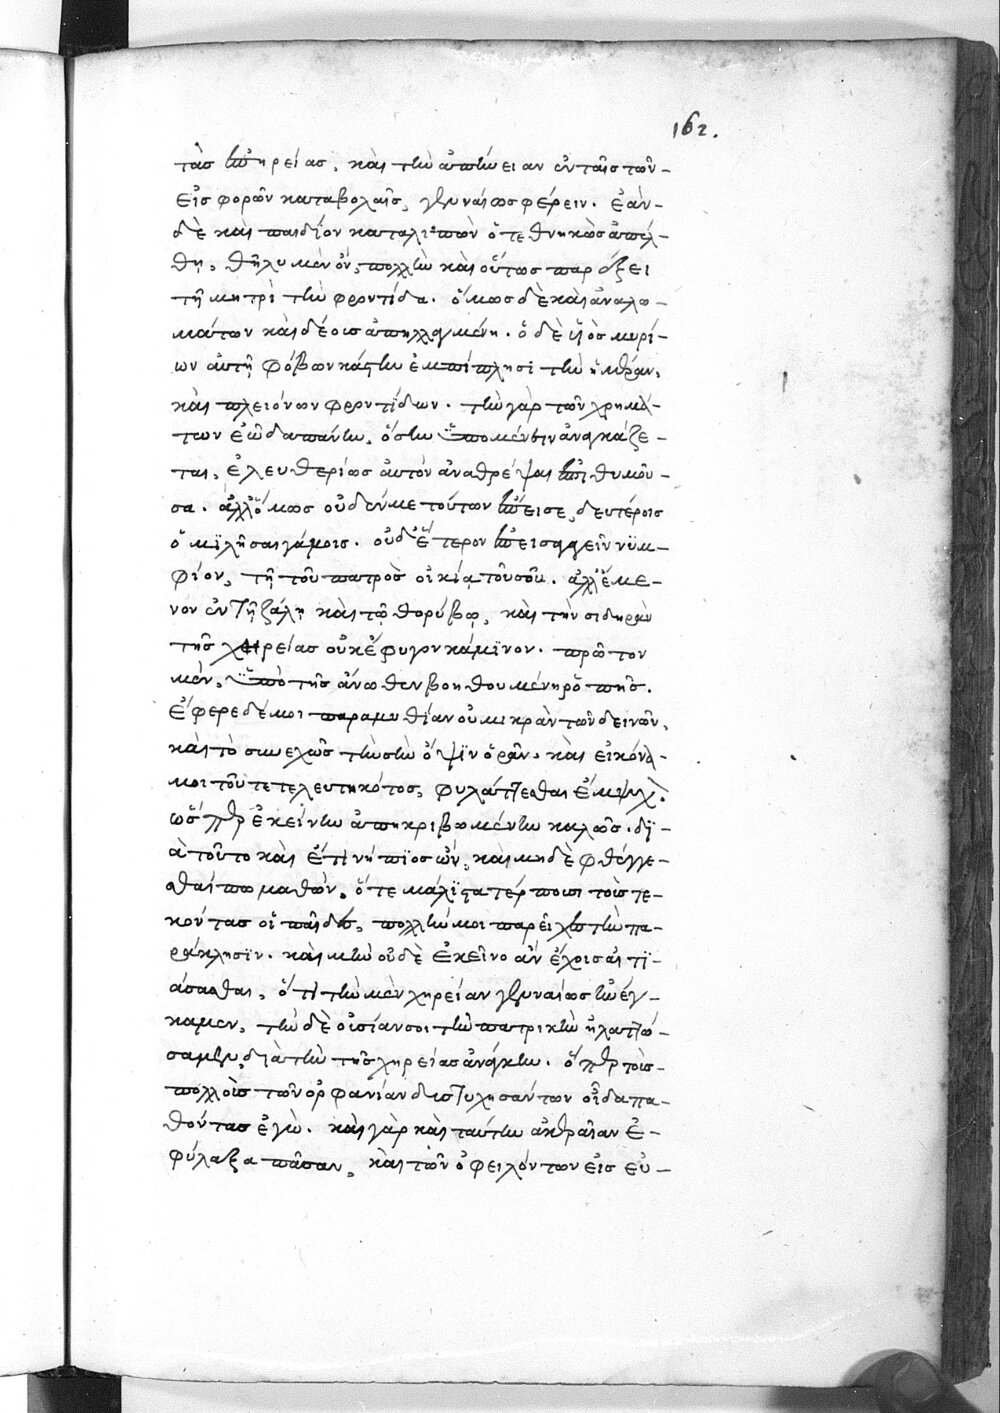 162.
τὰς ἐπηρείας, καὶ τὴν ἀπήνειαν ἐν ταῖς τῶν
εἰσφορῶν καταβολαῖς, γενναίως φέρειν. ἐὰν
δὲ καὶ παιδίον καταλιπὼν ὁ τεθνηκὼς ἀπέλ
θῃ, θῆλυ μὲν ὄν, πολλὴν καὶ οὕτως παρέξει
τῇ μητρὶ τὴν φροντίδα. ὅμως δὲ καὶ ἀναλω
μάτων καὶ δέους ἀπηλλαγμένη. ὁ δὲ υἱὸς μυρί
ων αὐτὴ φόβων κάστην ἐμπίπλησι τὴν ἡμέραν,
καὶ πλειόνων φροντίδων. τὴν γὰρ τῶν χρημά
των ἐῶ δαπάνην, ὅσην ὑπομένειν ἀναγκάζε
ται, ἐλευθερίως αὐτὸν ἀναθρέψαι ἐπιθυμοῦ
σα. ἀλλ' ὅμως οὐδέν με τούτων ἔπεισε, δευτέροις
ὁμιλῆσαι γάμοις. οὐδ' ἕτερον ἐπεισαγαγεῖν νυμ
φίον, τῇ τοῦ πατρὸς οἰκίᾳ τοῦ σοῦ. ἀλλ' ἔμε
νον ἐν τῇ ζάλῃ καὶ τῷ θορύβῳ, καὶ τὴν σιδηρὰν
τῆς χηρείας οὐκ ἔφυγον κάμινον. πρῶτον
μὲν, ὑπὸ τῆς ἄνωθεν βοηθουμένη ῥοπῆς.
ἔφερε δέ μοι παραμυθίαν οὐ μικρὰν τῶν δεινῶν,
καὶ τὸ συνεχῶς τὴν σὴν ὄψιν ὁρᾶν. καὶ εἰκόνα
μοι τοῦ τετελευτηκότος, φυλάττεσθαι ἔμψυχον.
ὥσπερ ἐκείνην ἀπηκριβωμένην καλῶς. δι
ὰ τοῦτο καὶ ἔτι νήπιος ὤν, καὶ μηδὲ φθέγγε
σθαί πω μαθών. ὅτε μάλιστα τέρπουσι τοὺς τε
κόντας οἱ παῖδες, πολλήν μοι παρεῖχες τὴν πα
ράκλησιν. καὶ μὴν οὐδὲ ἐκεῖνο ἂν ἔχοις αἰτι
άσασθαι, ὅτι τὴν μὲν χηρείαν γενναίως ἐπενέγ
καμεν, τὴν δὲ οὐσίαν σοι τὴν πατρικὴν ἠλαττώ
σαμεν, διὰ τὴν τῆς χηρείας ἀνάγκην. ὅπερ τοὺς
πολλοὺς τῶν ὀρφανίαν δυστυχησάντων οἶδα πα
θόντας ἐγώ. καὶ γὰρ καὶ ταύτην ἀκεραίαν ἐ
φύλαξα πᾶσαν, καὶ τῶν ὀφειλόντων εἰς εὐ